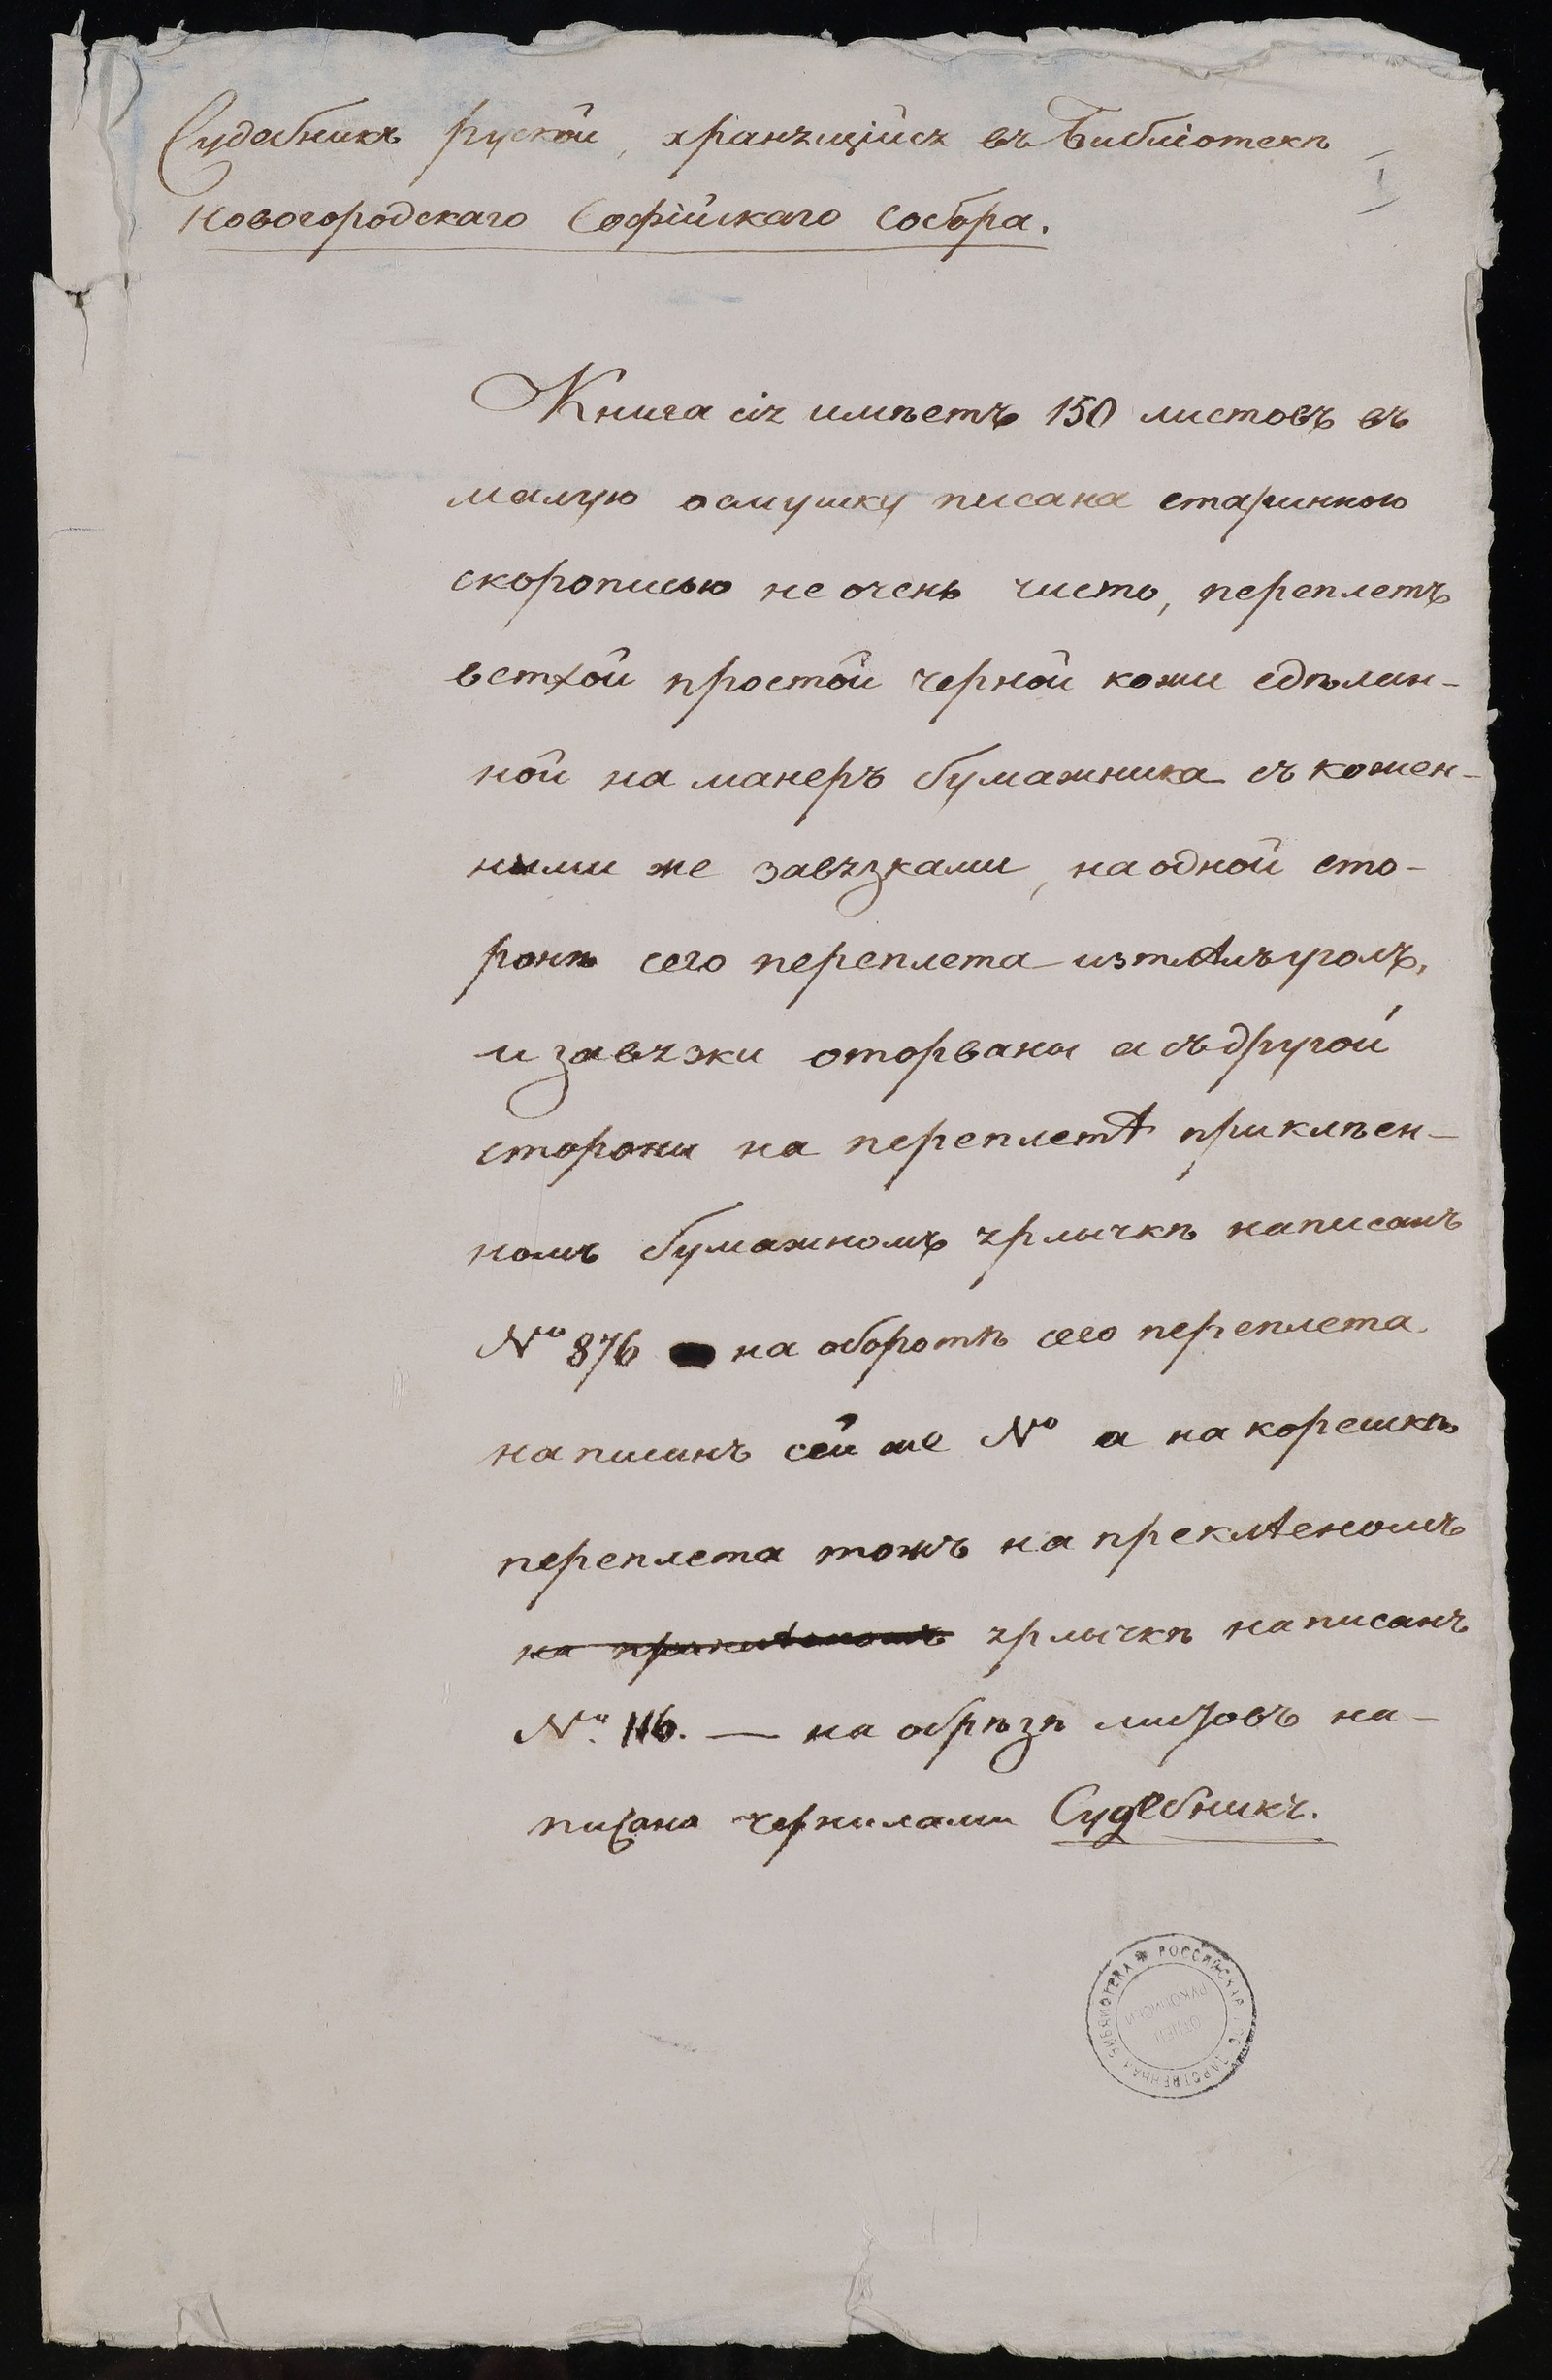 Судебникъ руской, хранящійся въ Библіотекѣ
I
Новогородскаго Софійскаго Собора.
Книга сія имѣетъ 150 листовъ въ
малую осмушку писана старинною
скорописью не очень чисто, переплетъ
ветхой простой черной кожи сдѣлан-
ной на манеръ бумажника съ кожен-
ными же завязками, на одной сто-
ронѣ сего переплета изтлѣлъ уголъ,
и завязки оторваны а съ другой
стороны на переплетѣ приклѣен-
номъ бумажномъ ярлычкѣ написанъ
№ 876 на оборотѣ сего переплета
написанъ сей же № а на корешкѣ
переплета тожъ на преклѣеномъ
на приклѣеномъ ярлычкѣ написанъ
№. 116. — на обрѣзѣ листовъ на-
писано чернилами Судебникъ.
РОССИЙСКАЯ ГОСУДАРСТВЕННАЯ БИБЛИОТЕКА
ОТДЕЛ
РУКОПИСЕЙ